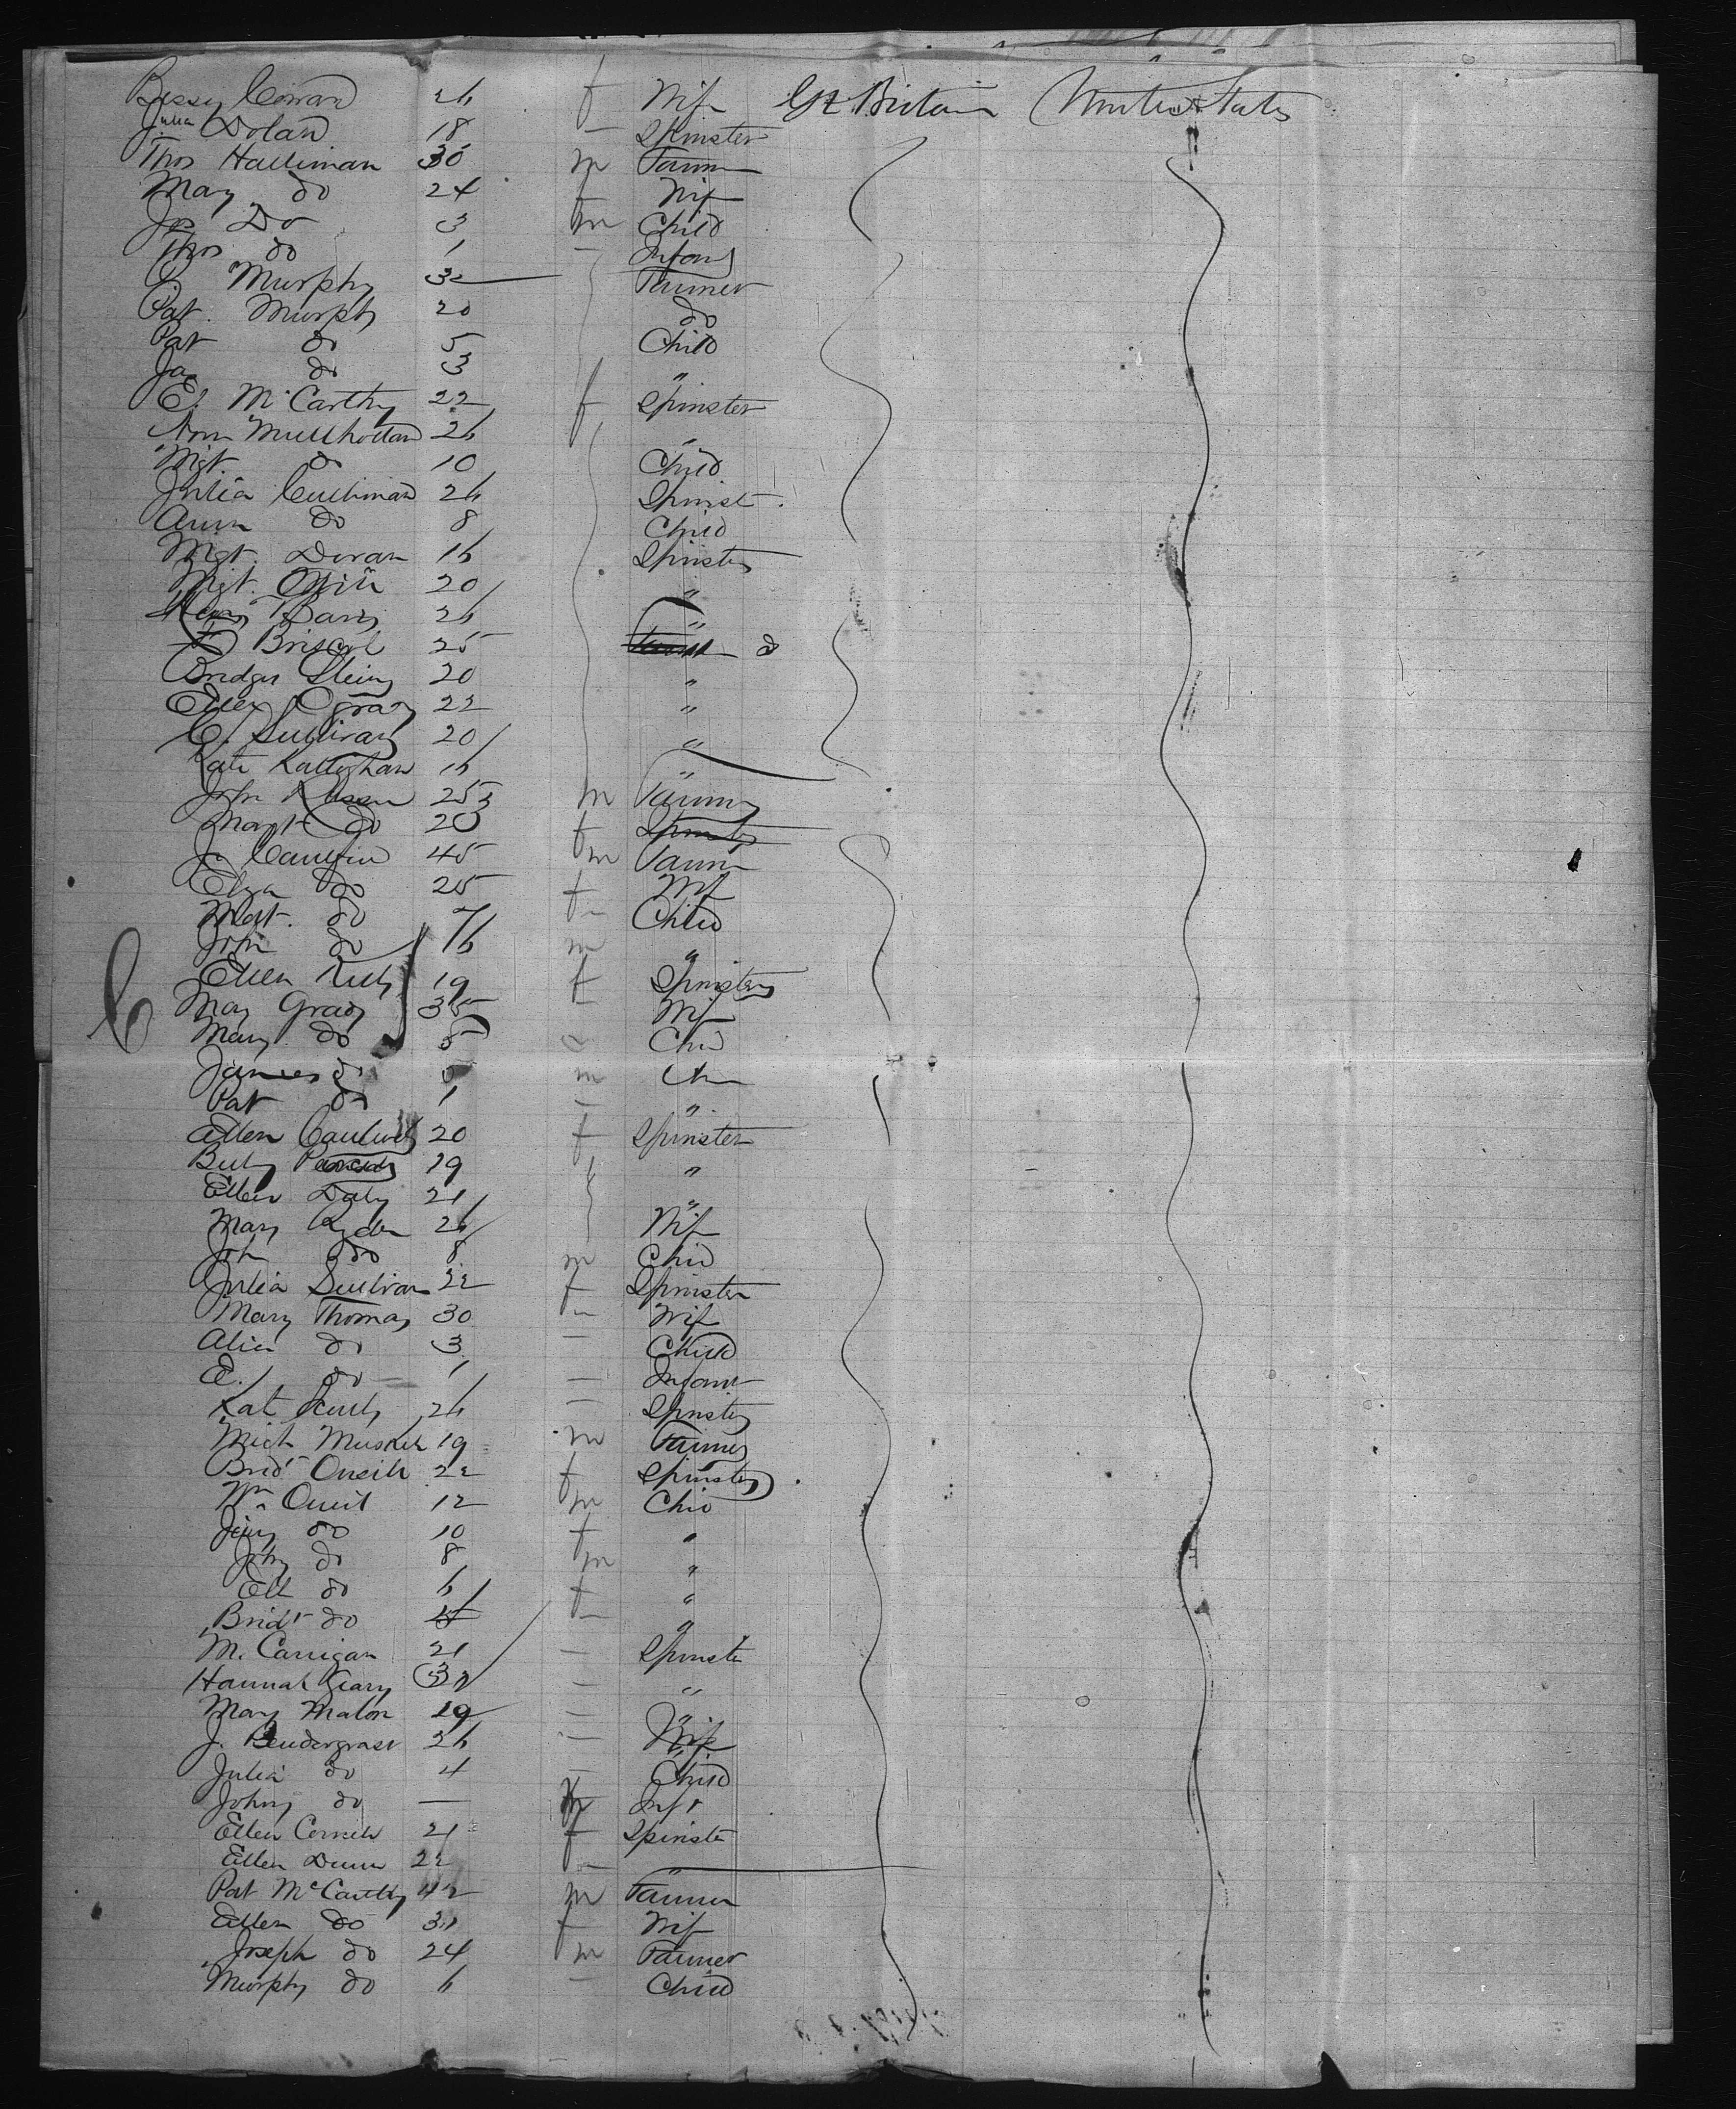 Bessy Conran 26 f Wife Gt Britain United States
Julia Dolan 18 — Spinster
Thos Hallinan 30 m Farmer
Mary do 24 f Wife
Jas Do 3 m Child
Thos do 1 — Infant
P Murphy 32 Farmer
Pat. Murphy 20 do
Pat do 5 Child
Jas do 3 "
E. McCarthy 22 f Spinster
Ann Mullholland 26 "
Mgt. do 10 Child
Julia Cullinan 26 Spinst.
Ann do 8 Child
Mgt. Doran 16 Spinster
Mgt. ONeill 20 "
Davis 26 "
Briscol 25 do
Bridget 20 "
Ellen Ogrady 22 "
C. Sullivan 20 "
Kate Kalleghan 16 "
John 25 m Farmer
Margt do 23 f Spinster
J. 45 m Farmer
Eliza do 25 f Wife
Mgt. do 7 — Child
John do 6 m "
Ellen Kelly 19 f Spinster
Mary Grady 35 — Wife
Mary do 8 Child
James do m Ch
Pat do 1 — "
Ellen 20 f Spinster
19 "
Ellen Daly 21 "
Mary Ryder 26 Wife
John do 8 m Child
Julia Sullivan 22 f Spinster
Mary Thomas 30 — Wife
Alice do 3 — Child
E. do 1 — Infant
Kate 26 — Spinster
Mich 19 m Farmer
Bridt Oneill 22 f Spinster
Wm Oneil 12 m Child
Jény do 10 f "
John do 8 m "
Ell do 6 f "
Bridt do 4 — "
M. Carrigan 21 — Spinster
Hannah Geary 32 — "
Mary Malon 19 — "
J. Pendergrast 26 — Wife
Julia do 4 — Child
Johny do — m Inft
Ellen 21 f Spinster
Ellen Dunn 22 — "
Pat McCarthy 42 m Farmer
Ellen do 30 f Wife
Joseph do 24 m Farmer
Murphy do 6 — Child